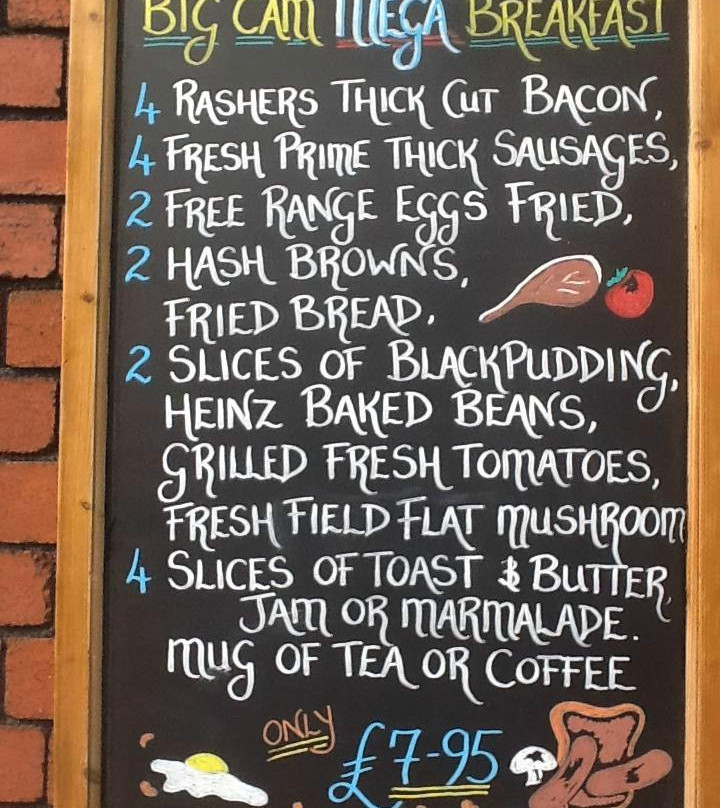 BIG CAM MEGA BREAKFAST
4 RASHERS THICK CUT BACON,
4 FRESH PRIME THICK SAUSAGES,
2 FREE RANGE EGGS FRIED,
2 HASH BROWNS,
FRIED BREAD,
2 SLICES OF BLACKPUDDING,
HEINZ BAKED BEANS,
GRILLED FRESH TOMATOES,
FRESH FIELD FLAT MUSHROOM
4 SLICES OF TOAST & BUTTER,
JAM OR MARMALADE.
MUG OF TEA OR COFFEE
ONLY
£7-95